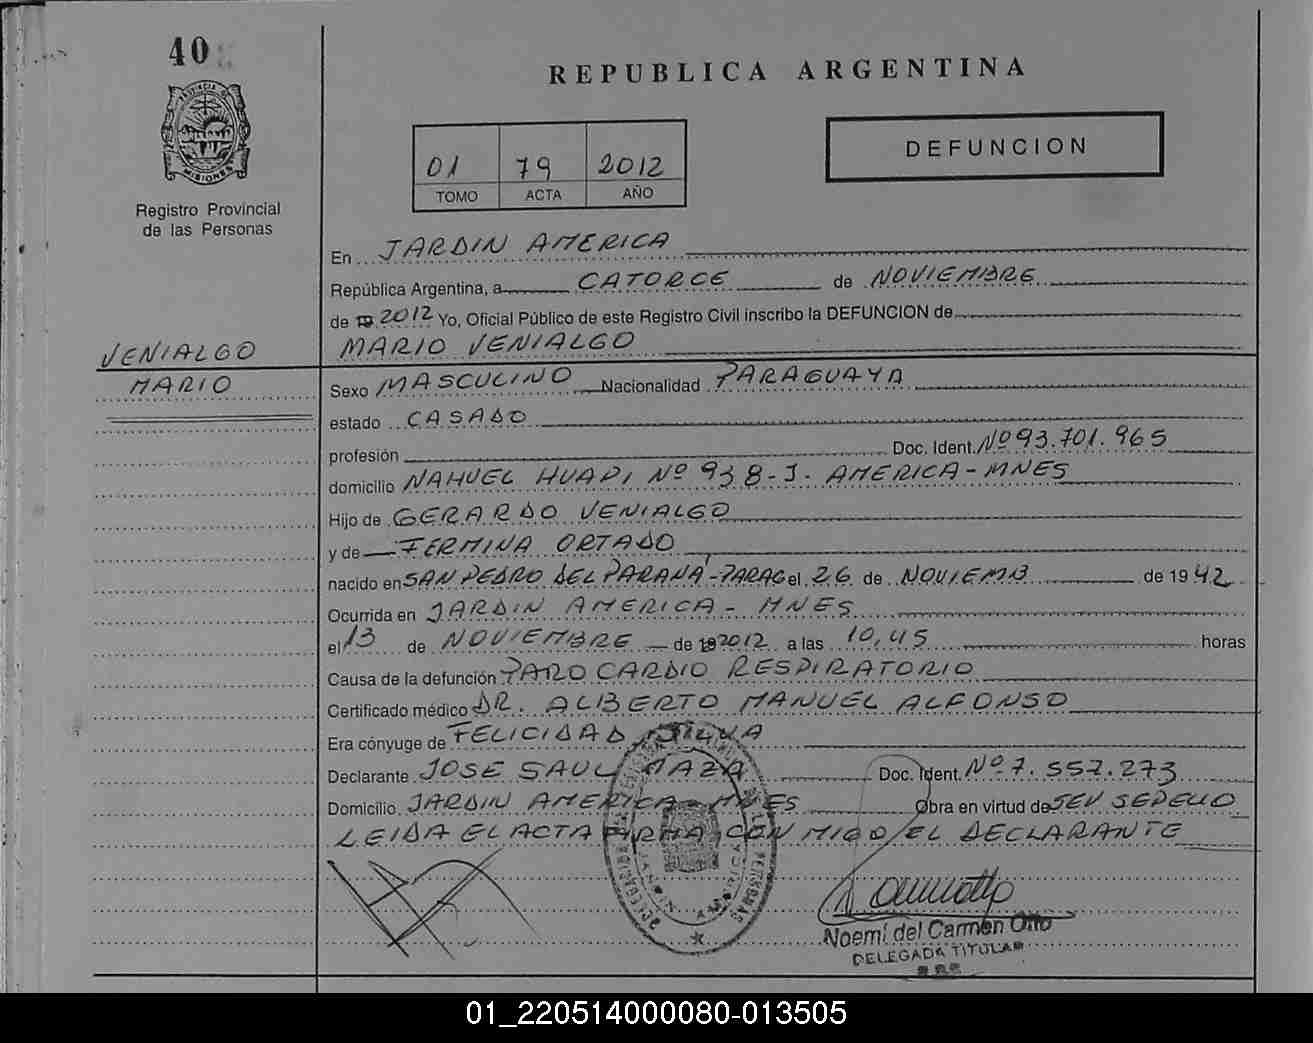 40
REPUBLICA ARGENTINA
01 79 2012
TOMO ACTA AÑO
DEFUNCION
PROVINCIA DE
MISIONES
Registro Provincial
de las Personas
En JARDIN AMERICA
República Argentina, a CATORCE de NOVIEMBRE
de 19 2012 Yo, Oficial Público de este Registro Civil inscribo la DEFUNCION de
VENIALGO
MARIO
MARIO VENIALGO
Sexo MASCULINO Nacionalidad PARAGUAYA
estado CASADO
profesión Doc. Ident. Nº 93.701.965
domicilio NAHUEL HUAPI Nº 938-J. AMERICA-MNES
Hijo de GERARDO VENIALGO
y de FERMINA ORTADO
nacido en SAN PEDRO DEL PARANA-PARAG el 26 de NOVIEMB de 1942
Ocurrida en JARDIN AMERICA - MNES
el 13 de NOVIEMBRE de 19 2012 a las 10,45 horas
Causa de la defunción PARO CARDIO RESPIRATORIO
Certificado médico DR. ALBERTO MANUEL ALFONSO
Era cónyuge de FELICIDAD SILVA
Declarante JOSE SAUL MAZA Doc. Ident. Nº 7.557.273
Domicilio JARDIN AMERICA - MNES Obra en virtud de SEV SEPELIO
LEIDA EL ACTA FIRMA CON MIGO EL DECLARANTE
Noemí del Carmen Otto
DELEGADA TITULAR
01_220514000080-013505